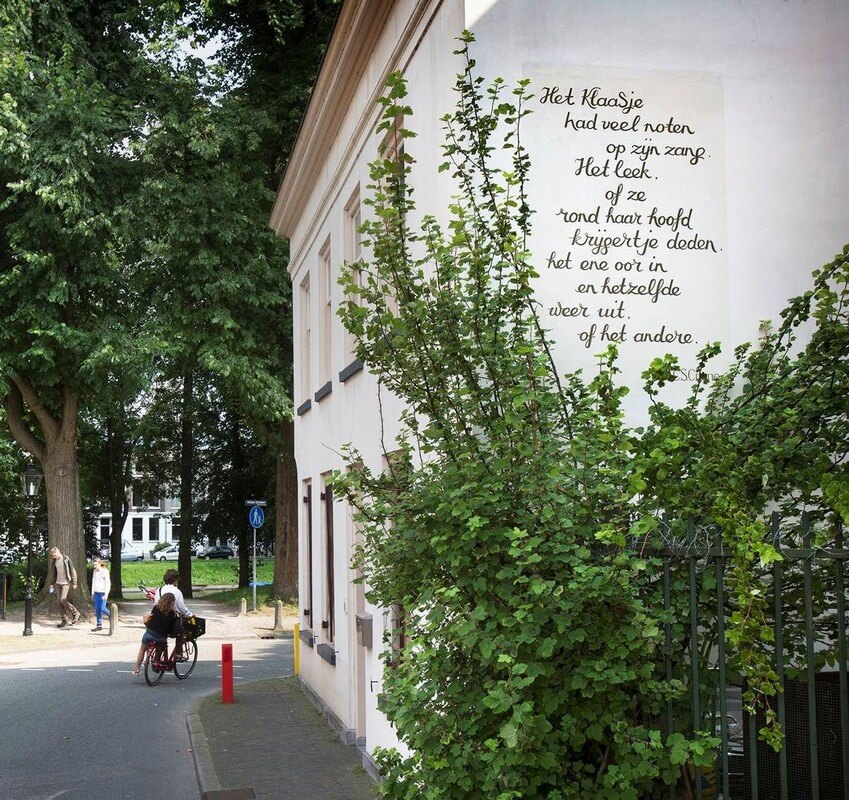 Het KlaaSje
had veel noten
op zijn zang.
Het leek.
of ze
rond haar hoofd
krijgertje deden.
het ene oor in
en hetzelfde
weer uit.
of het andere.